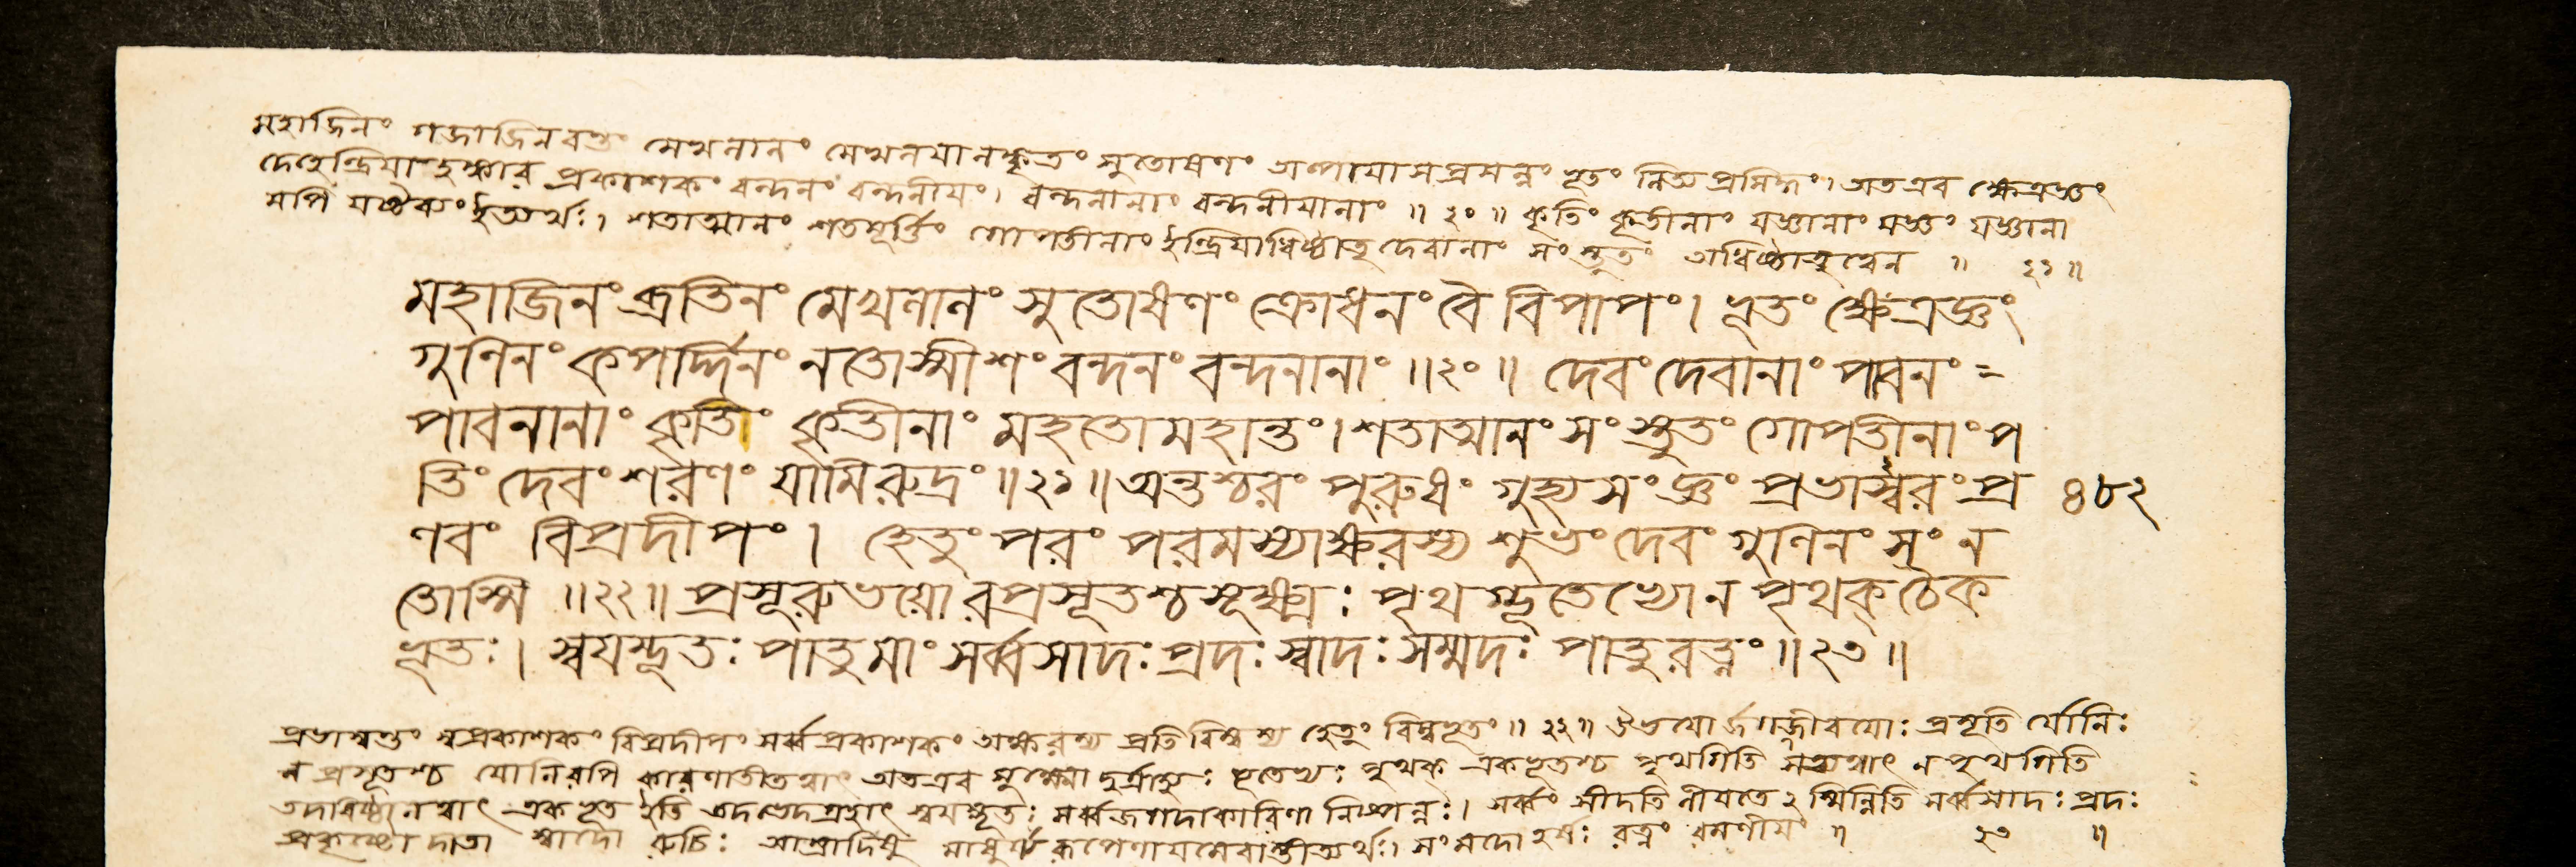 মহাজিনং গজাজিনবন্তং মেখনানং সুতোষণং অল্পায়াসপ্রসন্নং ভূতং নিত্যপ্রসিদ্ধং। অতএব ক্ষেত্রজ্ঞং
প্রকাশকং বন্দনং বন্দনীয়ং। বন্দনানাং বন্দনীয়ানাং ॥ ২০ ॥ কৃতিং কৃতীনাং যজ্ঞানাং যজ্ঞং যজ্ঞানা
মপি ইত্যর্থঃ। শতাত্মানং শতমূর্ত্তিং গোপতীনাং ইন্দ্রিয়াধিষ্ঠাতৃদেবানাং সংস্তুতং অধিষ্ঠাতৃত্বেন ॥ ২১ ॥
মহাজিনং ব্রতিনং মেখলানং সুতোষণং ক্রোধনং বৈ বিপাপং। ভূতং ক্ষেত্রজ্ঞং
গুণিনং কপর্দ্দিনং নতোস্মীশং বন্দনং বন্দনানাং ॥ ২০ ॥ দেবং দেবানাং পাবনং =
পাবনানাং কৃতিং কৃতীনাং মহতো মহান্তং। শতাত্মানং সংস্তুতং গোপতীনাং প
তিং দেবং শরণং যামি রুদ্রং ॥ ২১ ॥ অন্তশ্চরং পুরুষং গুহ্যসংজ্ঞং প্রভাস্বরং প্র ৪৮২
ণবং বিপ্রদীপং। হেতুং পরং পরমস্যাক্ষরস্য শুভং দেবং গুণিনং সং ন
তোস্মি ॥ ২২ ॥ প্রসূরুভয়োরপ্রসূতশ্চ সূক্ষ্মঃ পৃথগ্ভূতেভ্যো ন পৃথক্ চৈক
ভূতঃ। স্বয়ম্ভূতঃ পাতু মাং সর্ব্বসাদঃ প্রদঃ স্বাদঃ সম্মদঃ পাতু রত্নং ॥ ২৩ ॥
প্রভাস্বন্তং স্বপ্রকাশকং বিপ্রদীপং সর্ব্বপ্রকাশকং অক্ষরস্য প্রতিবিম্বস্য হেতুং বিম্বভূতং ॥ ২২ ॥ প্রসূতি র্যোনিঃ
ন প্রসূতশ্চ যোনিরপি কারণাতীতত্বাৎ অতএব সূক্ষ্মো ভূতেভ্যঃ পৃথক্ একভূতশ্চ পৃথগিতি ন পৃথগিতি
তদধিষ্ঠানত্বাৎ একভূত ইতি স্বয়ম্ভূতঃ সর্ব্বজগদাকারিণা নিষ্পন্নঃ। সর্ব্বং সীদতি সর্ব্বসাদঃ প্রদঃ
প্রকৃষ্টো দাতা স্বাদো রুচিঃ সংমদো হর্ষঃ রত্নং রমণীয়ং ॥ ২৩ ॥